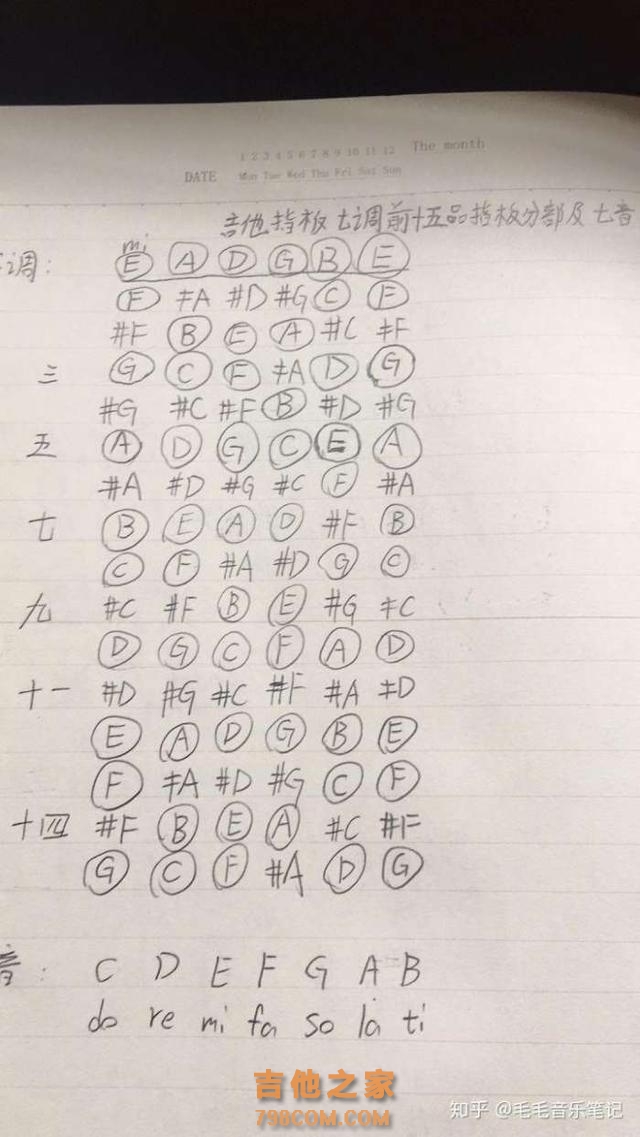 1 2 3 4 5 6 7 8 9 10 11 12 The month
DATE Mon Tue Wed Thu Fri Sat Sun
吉他指板七调前十五品指板分部及七音
调: mi
E A D G B E
F #A #D #G C F
#F B E A #C #F
三 G C F #A D G
#G #C #F B #D #G
五 A D G C E A
#A #D #G #C F #A
七 B E A D #F B
C F #A #D G C
九 #C #F B E #G #C
D G C F A D
十一 #D #G #C #F #A #D
E A D G B E
F #A #D #G C F
十四 #F B E A #C #F
G C F #A D G
音: C D E F G A B
do re mi fa so la ti
吉他之家
798COM.COM
知乎 @毛毛音乐笔记